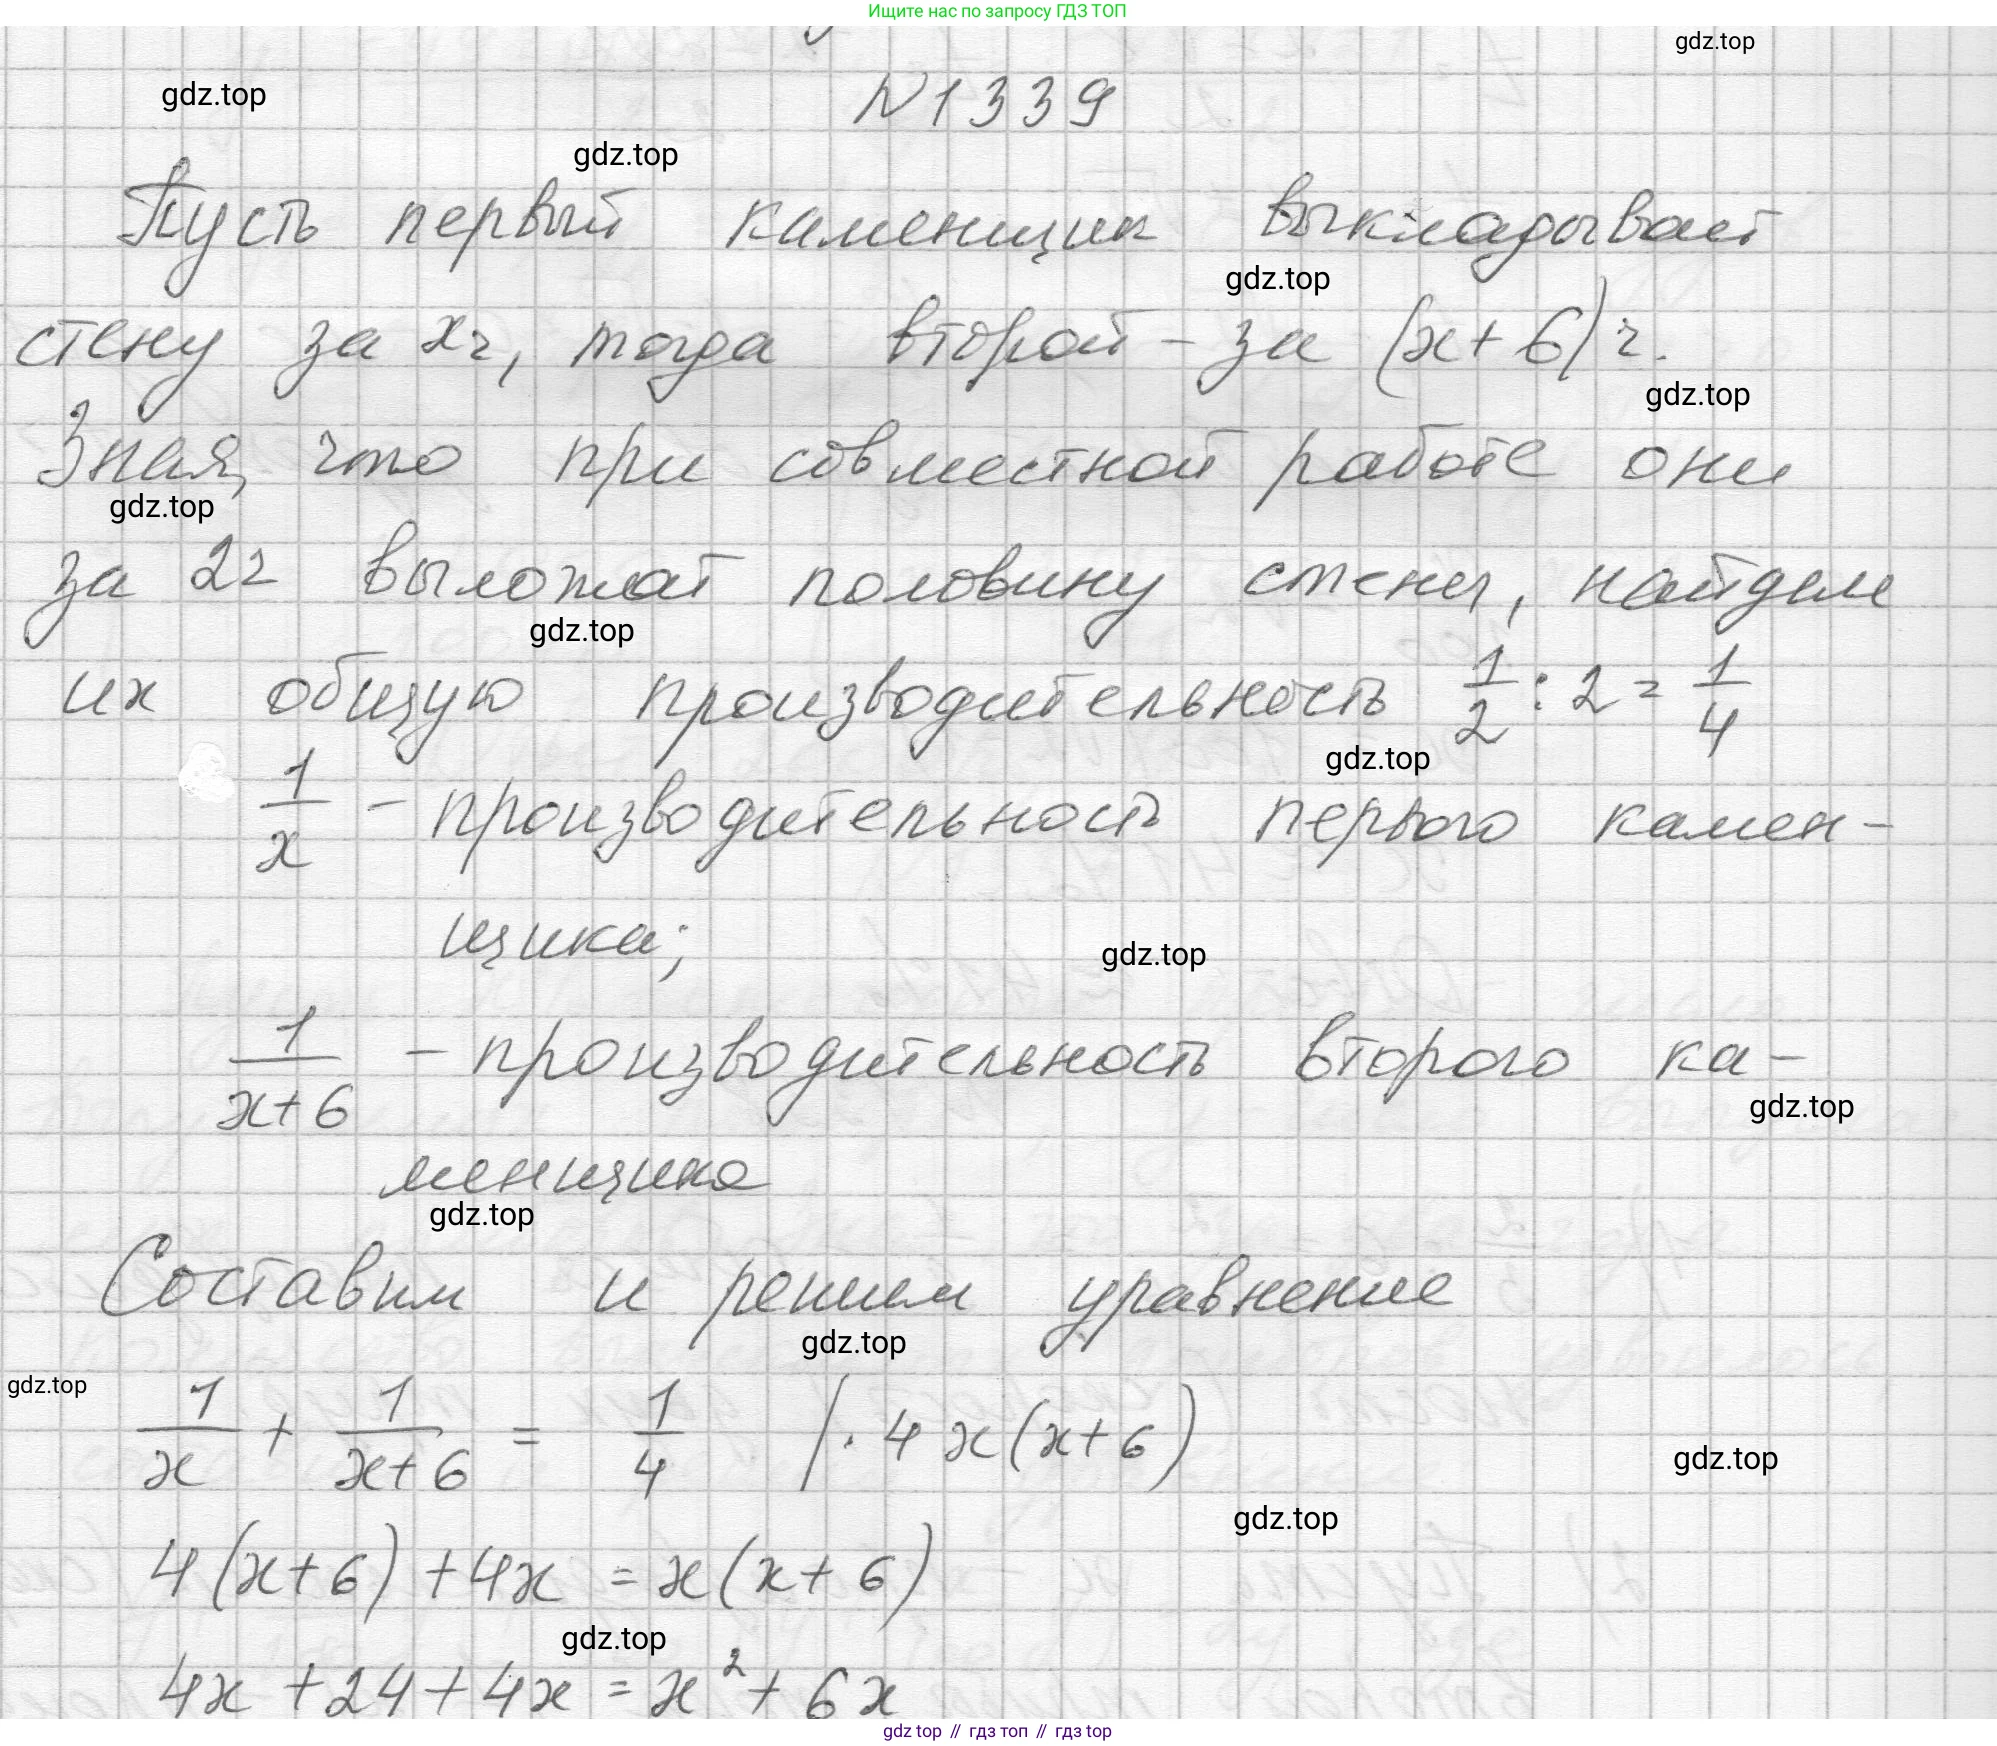 Ищите нас по запросу ГДЗ ТОП
gdz.top
N1339
gdz.top
gdz.top
Пусть первый каменщик выкладывает
gdz.top
стену за x ч, тогда второй - за (x+6) ч.
gdz.top
Зная, что при совместной работе они
gdz.top
за 2ч выложат половину стены, найдем
gdz.top
их общую производительность 1/2 : 2 = 1/4
gdz.top
1/x - производительность первого камен-
щика;
gdz.top
1/(x+6) - производительность второго ка-
gdz.top
менщика
gdz.top
Составим и решим уравнение
gdz.top
gdz.top
1/x + 1/(x+6) = 1/4 | · 4x(x+6)
gdz.top
gdz.top
4(x+6) + 4x = x(x+6)
gdz.top
4x + 24 + 4x = x² + 6x
gdz top // гдз топ // гдз top